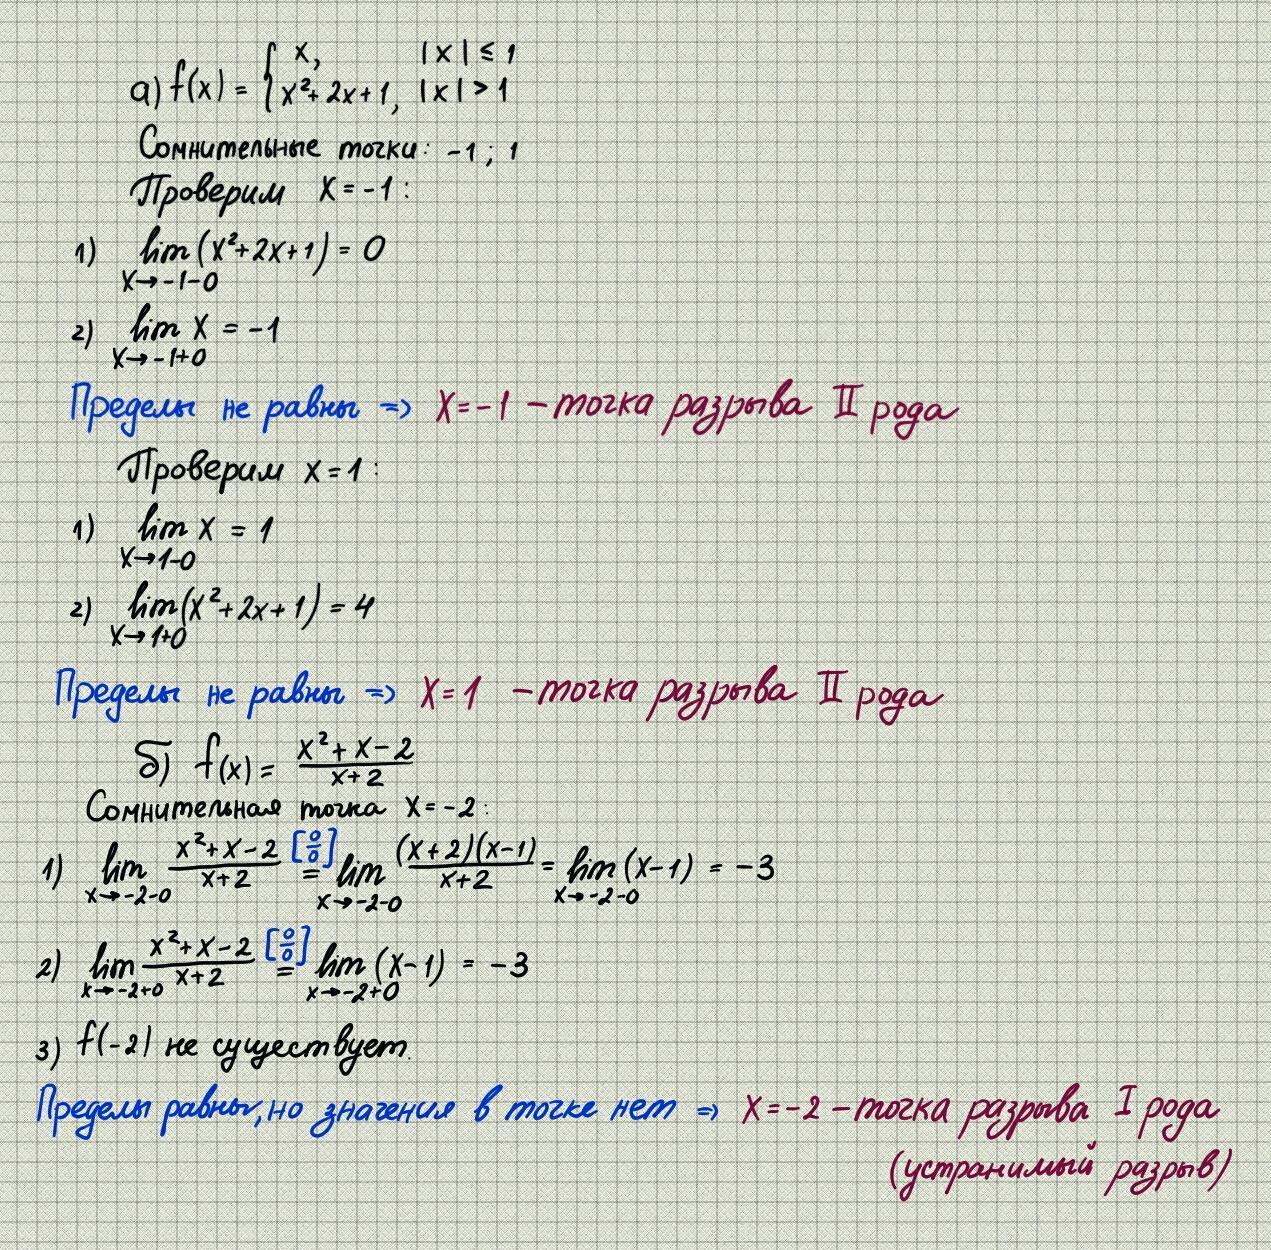 а) f(x) = { x, |x| ≤ 1
x²+2x+1, |x| > 1
Сомнительные точки: -1; 1
Проверим x=-1:
1) lim (x²+2x+1) = 0
x→-1-0
2) lim x = -1
x→-1+0
Пределы не равны => x=-1 - точка разрыва II рода
Проверим x=1:
1) lim x = 1
x→1-0
2) lim (x²+2x+1) = 4
x→1+0
Пределы не равны => x=1 - точка разрыва II рода
б) f(x) = (x²+x-2)/(x+2)
Сомнительная точка x=-2:
1) lim (x²+x-2)/(x+2) [0/0] = lim ((x+2)(x-1))/(x+2) = lim (x-1) = -3
x→-2-0 x→-2-0 x→-2-0
2) lim (x²+x-2)/(x+2) [0/0] = lim (x-1) = -3
x→-2+0 x→-2+0
3) f(-2) не существует.
Пределы равны, но значения в точке нет => x=-2 - точка разрыва I рода
(устранимый разрыв)